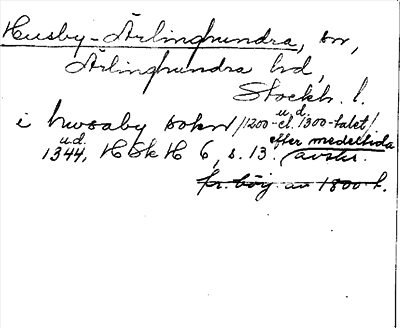 Husby-Ärlinghundra, sn,
Ärlinghundra hd,
Stockh. l.
i hwsaby sokn /1200- u.d. el. 1300-talet/
u.d. 1344, HSkH 6, s. 13. efter medeltida avskr.
fr. börj. av 1800 t.